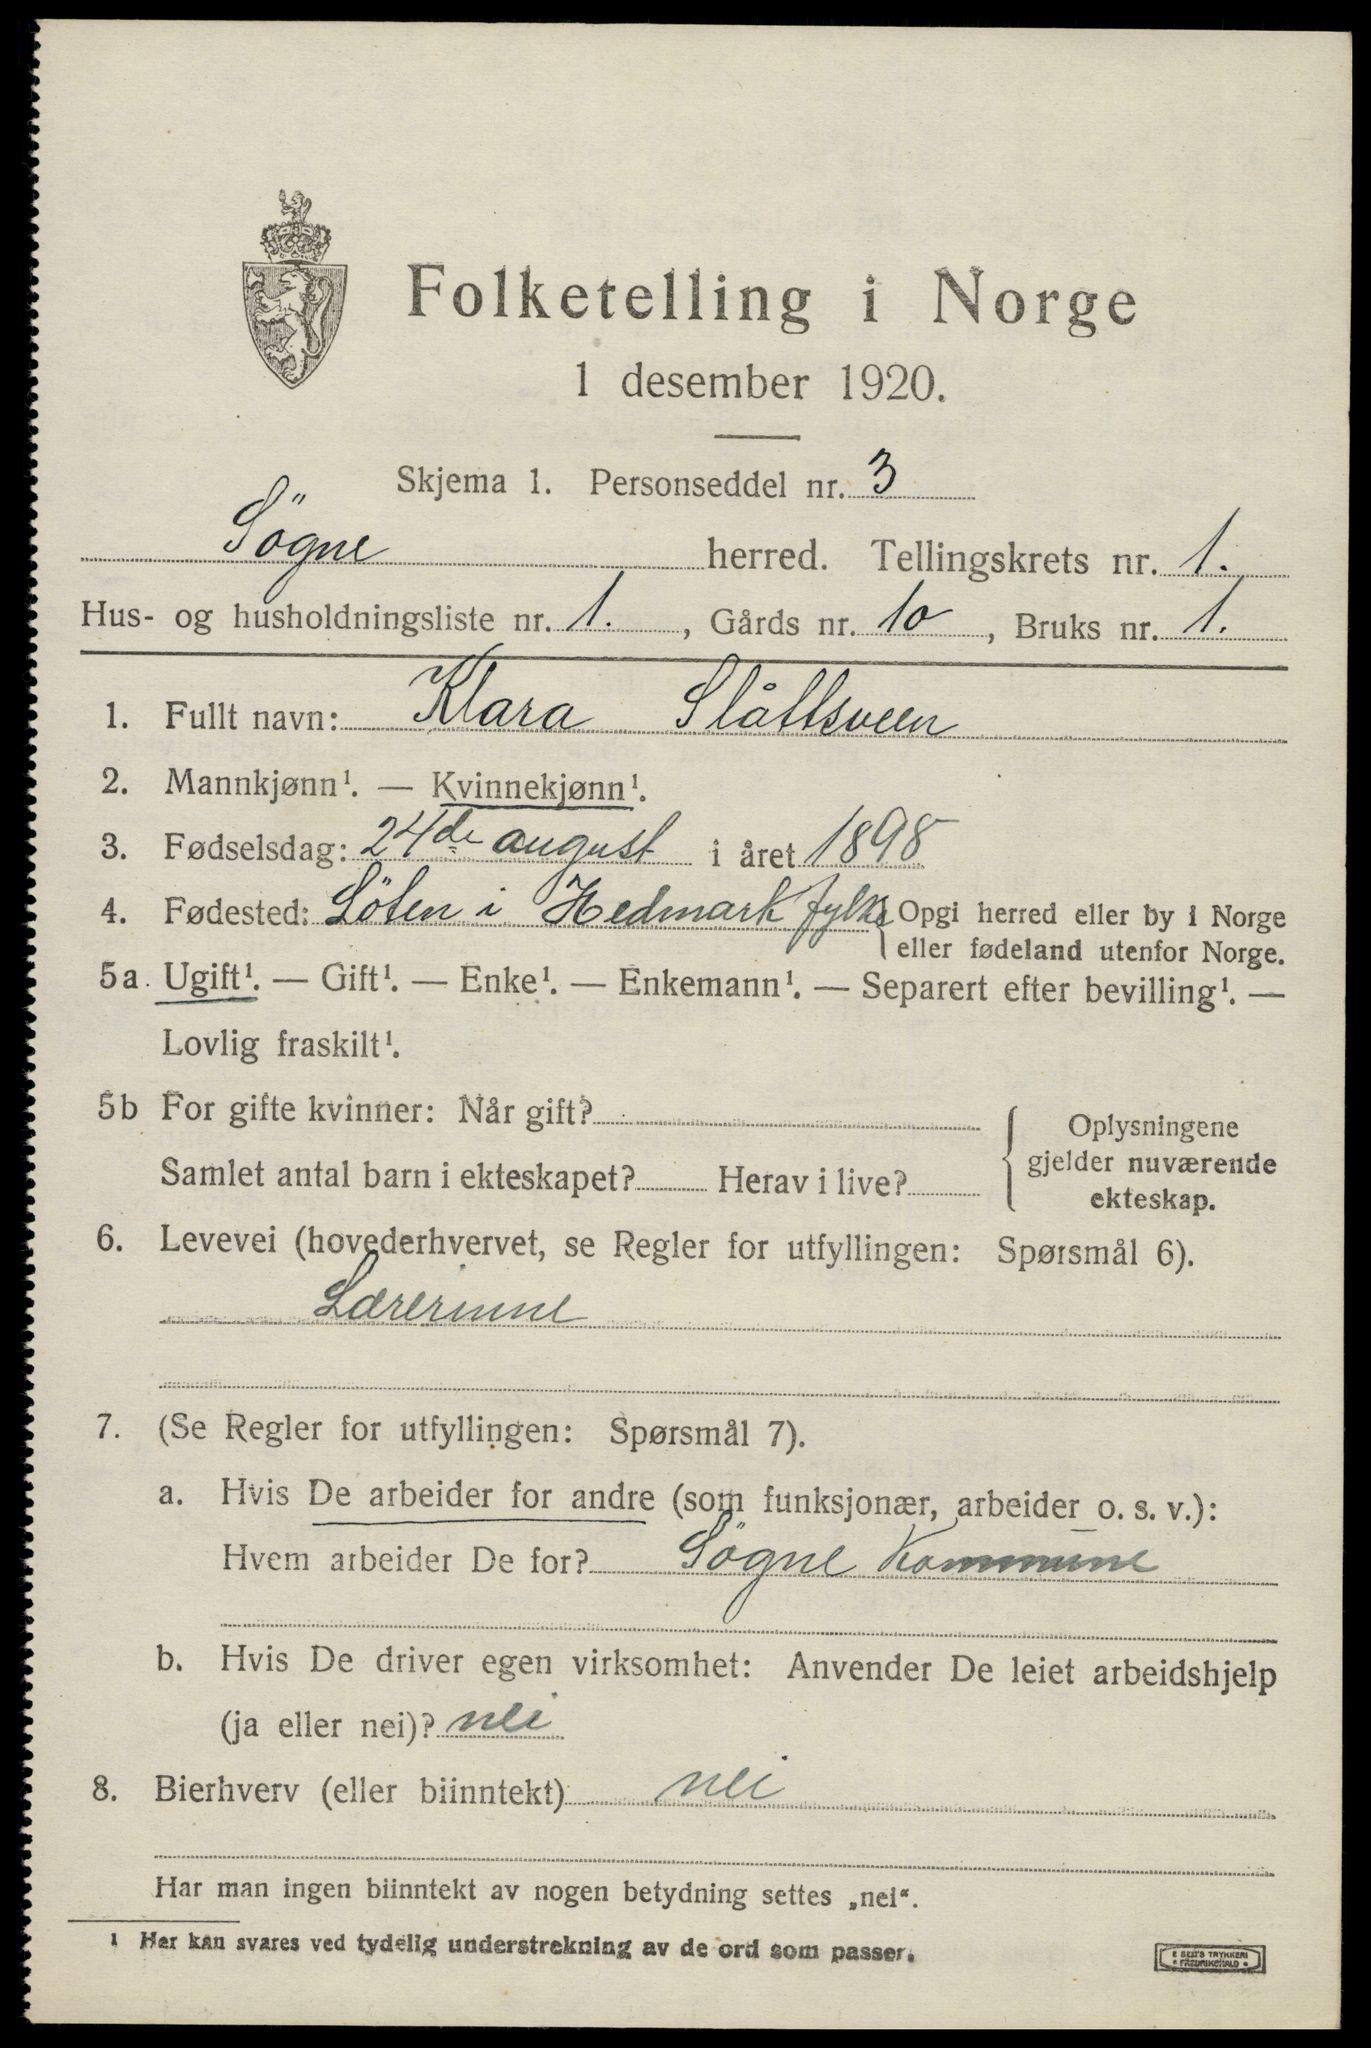 Folketelling i Norge
1 desember 1920.
Skjema 1. Personseddel nr. 3
Søgne herred. Tellingskrets nr. 1.
Hus- og husholdningsliste nr. 1., Gårds nr. 10, Bruks nr. 1.
1. Fullt navn: Klara Slåttsveen
2. Mannkjønn¹. — Kvinnekjønn¹.
3. Fødselsdag: 24de august i året 1898
4. Fødested: Löten i Hedmark fylke { Opgi herred eller by i Norge
eller fødeland utenfor Norge.
5a. Ugift¹. — Gift¹. — Enke¹. — Enkemann¹. — Separert efter bevilling¹. —
Lovlig fraskilt¹.
5b For gifte kvinner: Når gift?
Samlet antal barn i ekteskapet? Herav i live?
Oplysningene
gjelder nuværende
ekteskap.
6. Levevei (hovederhvervet, se Regler for utfyllingen: Spørsmål 6).
Lærerinne
7. (Se Regler for utfyllingen: Spørsmål 7).
a. Hvis De arbeider for andre (som funksjonær, arbeider o. s. v.):
Hvem arbeider De for? Sögne Kommune
b. Hvis De driver egen virksomhet: Anvender De leiet arbeidshjelp
(ja eller nei)? nei
8. Bierhverv (eller biinntekt) nei
Har man ingen biinntekt av nogen betydning settes „nei“.
¹ Her kan svares ved tydelig understrekning av de ord som passer.
E SEM'S TRYKKERI
• FREDRIKSHALD •